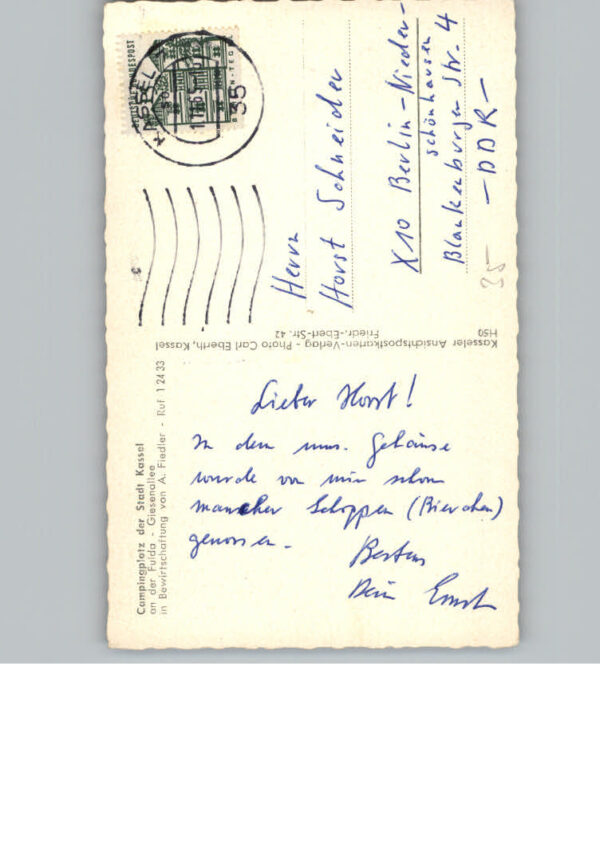 Lieber Horst!
In dem
Gehäuse
wurde von mir schon
mancher Schoppen (Bierchen)
genossen.
Bestens
Dein Ernst
Herrn
Horst Schneider
X10 Berlin-Nieder-
schönhausen
Blankenburger Str. 4
- DDR -
35
Campingplatz der Stadt Kassel
an der Fulda - Giesenallee
in Bewirtschaftung von A. Fiedler - Ruf 1 24 33
Kasseler Ansichtspostkarten-Verlag - Photo Carl Eberth, Kassel
Friedr.-Ebert-Str. 42
H50
DEUTSCHE BUNDESPOST
KASSEL
35